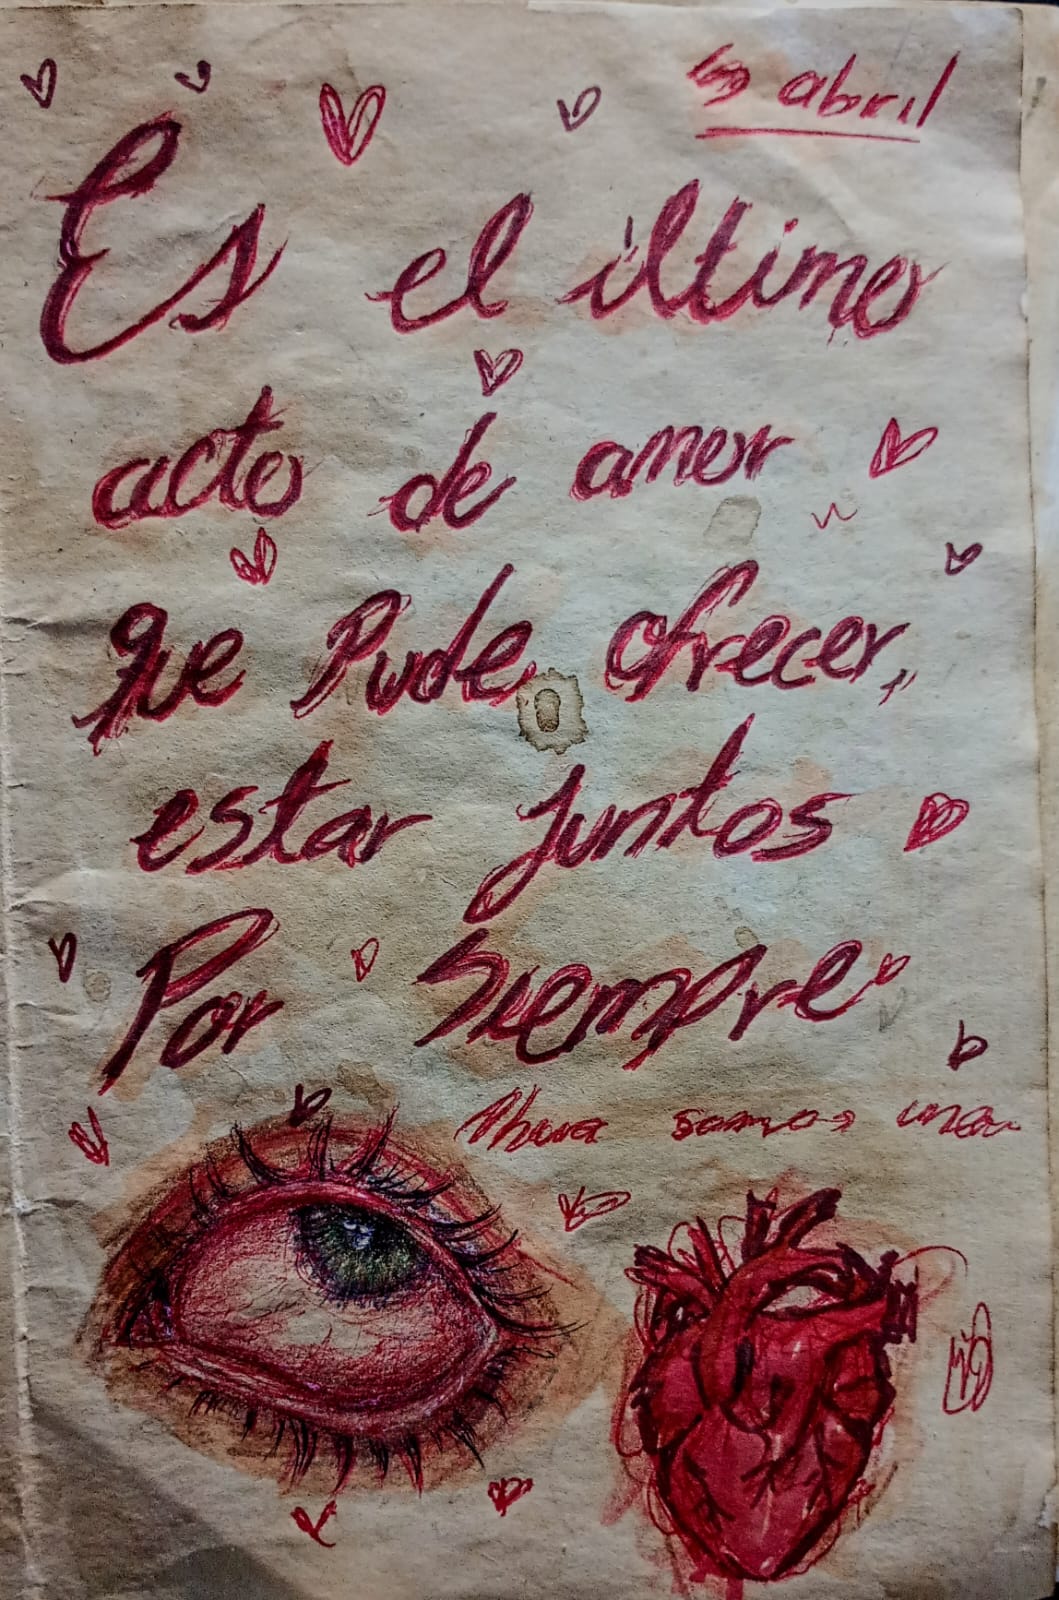 abril
Es el último
acto de amor
que Pude ofrecer,
estar juntos
Por siempre
Ahora somos una